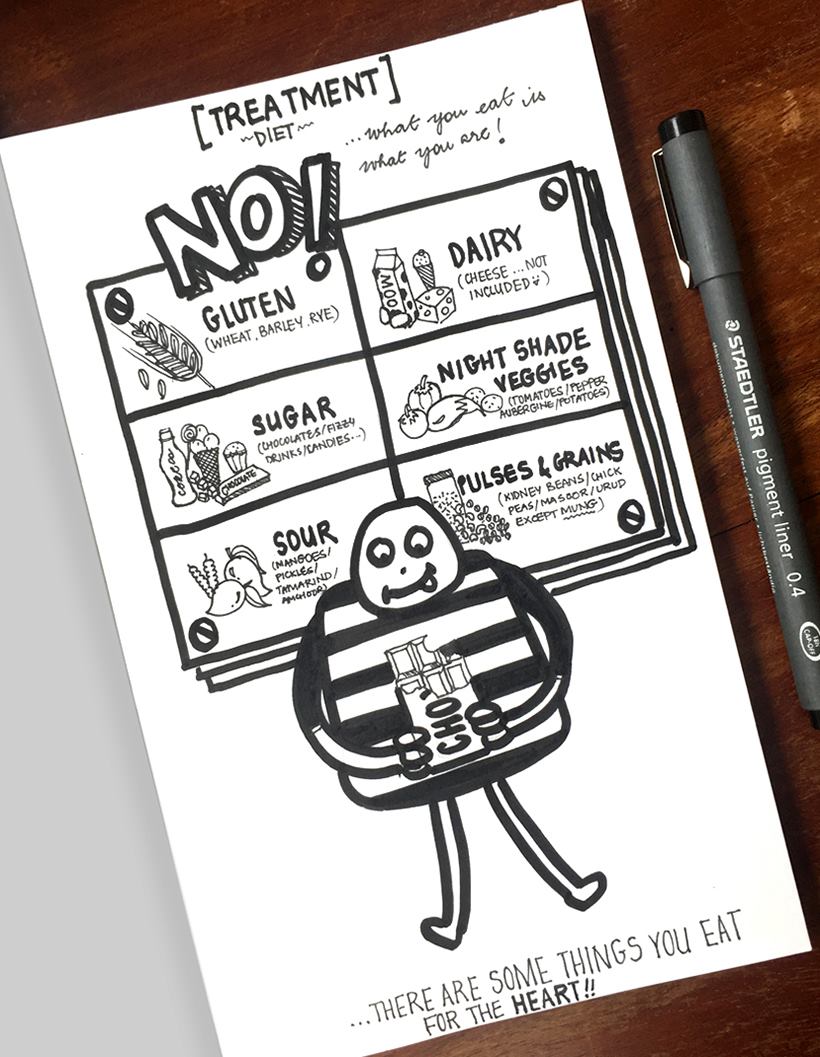 [TREATMENT]
~DIET~
...what you eat is
what you are!
NO!
GLUTEN
(WHEAT, BARLEY, RYE)
DAIRY
(CHEESE ... NOT
INCLUDED)
MOO
SUGAR
(CHOCOLATES/FIZZY
DRINKS/CANDIES...)
CHOCOLATE
NIGHT SHADE
VEGGIES
(TOMATOES/PEPPER
AUBERGINE/POTATOES)
SOUR
(MANGOES/
PICKLES/
TAMARIND/
AMCHOOR)
PULSES & GRAINS
(KIDNEY BEANS/CHICK
PEAS/MASOOR/URUD
EXCEPT MUNG)
CHO
...THERE ARE SOME THINGS YOU EAT
FOR THE HEART!!
STAEDTLER pigment liner 0.4
CAP-OFF